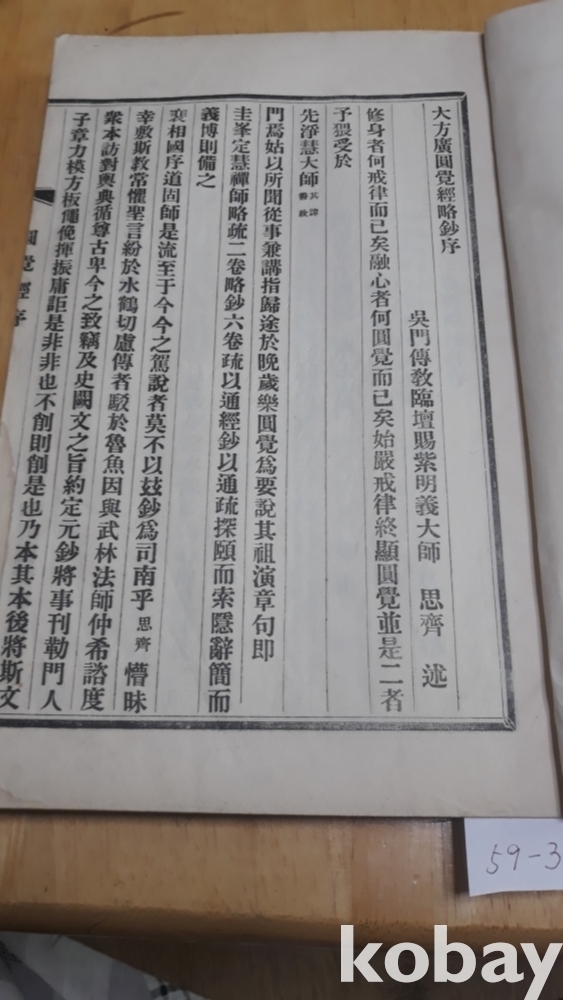 大方廣圓覺經略鈔序
吳門傳教臨壇賜紫明義大師 思齊 述
修身者何戒律而已矣融心者何圓覺而已矣始嚴戒律終顯圓覺並是二者
予猥受於
先淨慧大師其諱善
門焉姑以所聞從事兼講指歸途於晚歲樂圓覺爲要說其祖演章句即
圭峯定慧禪師略疏二卷略鈔六卷疏以通經鈔以通疏探賾而索隱辭簡而
義博則備之
裴相國序道固師是流至于今今之駕說者莫不以玆鈔爲司南乎思齊懵昧
幸敷斯教常懼聖言紛於水鶴切慮傳者駁於魯魚因與武林法師仲希諮度
衆本訪對輿典循尊古卑今之致竊及史闕文之旨約定元鈔將事刊勒門人
子章力模方板僶俛揮振庸詎是非非也不刱則刱是也乃本其本後將斯文
圓覺經序
59-3
kobay